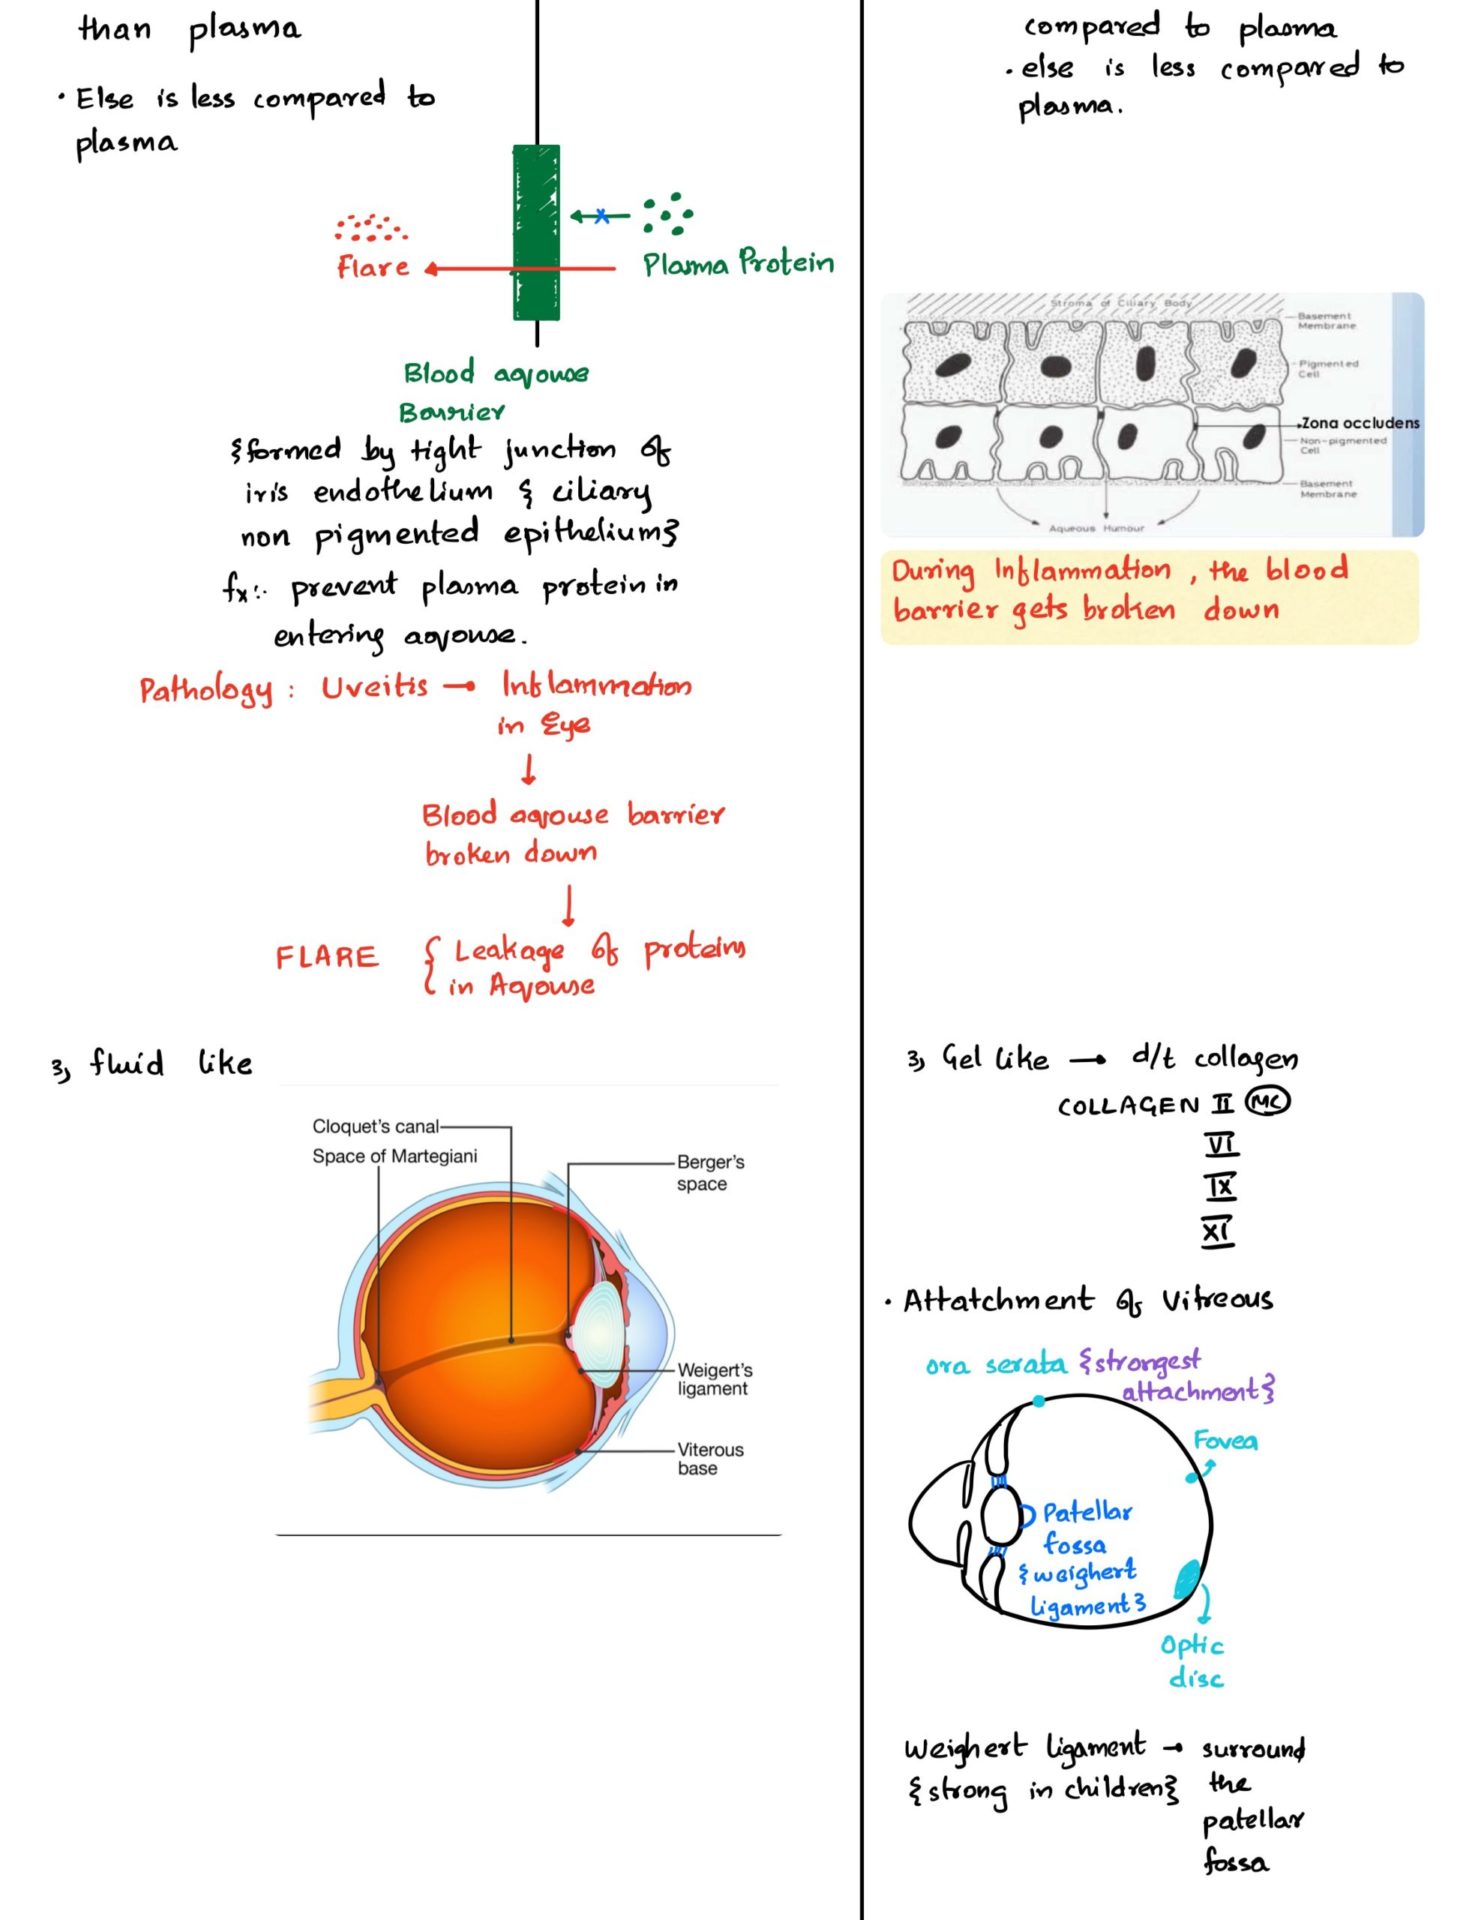 than plasma
• Else is less compared to
plasma
Flare
Plasma Protein
Blood aqouse
Barrier
{formed by tight junction of
iris endothelium & ciliary
non pigmented epithelium}
fx:- prevent plasma protein in
entering aqouse.
Pathology : Uveitis → Inflammation
in Eye
↓
Blood aqouse barrier
broken down
↓
FLARE { Leakage of proteins
in Aqouse
3, fluid like
Cloquet's canal
Space of Martegiani
Berger's
space
Weigert's
ligament
Viterous
base
compared to plasma
• else is less compared to
plasma.
Stroma of Ciliary Body
Basement
Membrane
Pigmented
Cell
Zona occludens
Non-pigmented
Cell
Basement
Membrane
Aqueous Humour
During Inflammation , the blood
barrier gets broken down
3, Gel like → d/t collagen
COLLAGEN II MC
VI
IX
XI
• Attatchment of Vitreous
ora serata {strongest
attachment}
Fovea
Patellar
fossa
{weighert
ligament}
Optic
disc
Weighert ligament → surround
{strong in children} the
patellar
fossa